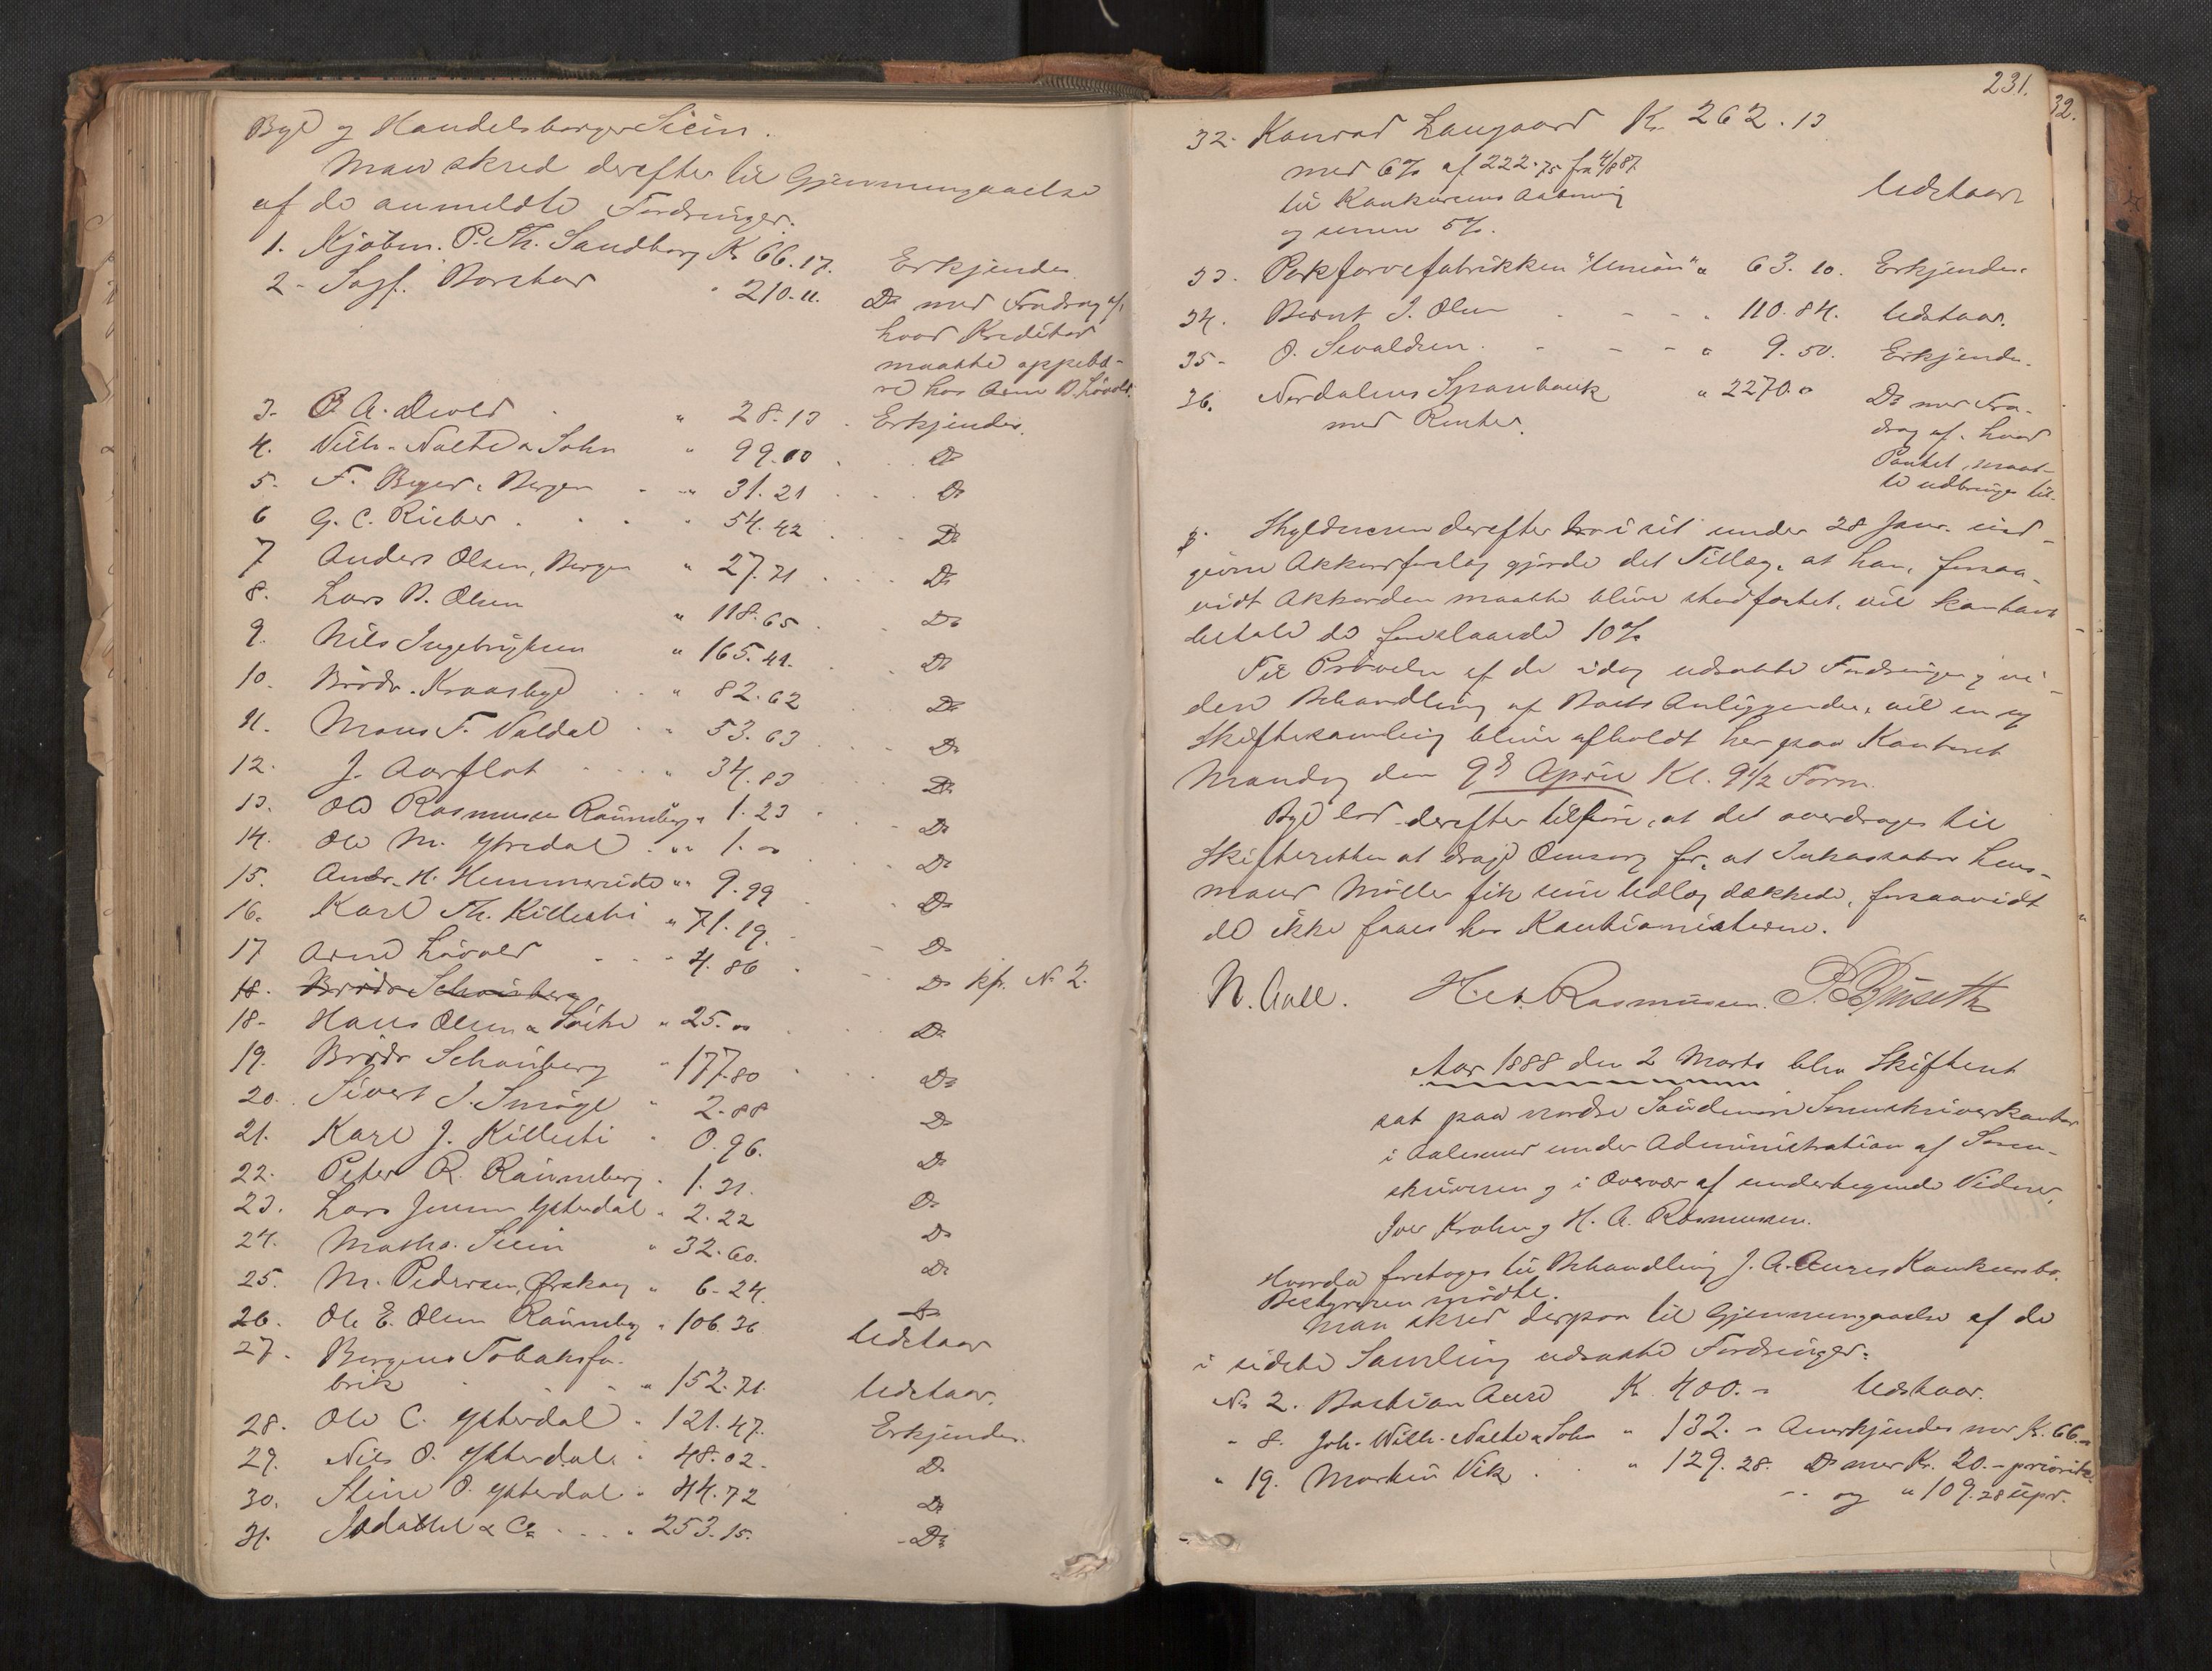 Byd og Handelsborger Stein.
Man skred derefter til Gjennemgaaelse
af de anmeldte Fordringer.
1. Kjøbm. P. Th. Sandborg K. 66.17. Erkjendes.
2. Sagf. " 210.11. Do med Fradrag af,
hvad Kreditor
maatte oppebæ-
re hos Arne N. Løvold.
3. O. A. Devold " 28.13. Erkjendes.
4. Wilh. Nolte & Sohn " 99.00 Do
5. F. Beyer, Bergen " 31.21 Do
6 G. C. Rieber " 54.42 Do
7 Anders Olsen, Bergen " 27.71 Do
8. Lars N. Olsen " 118.65 Do
9. Nils Ingebrigtsen " 165.41. Do
10. Brødr. Kraasbye " 82.62 Do
11. Mons F. Valdal " 53.63 Do
12. J. Aarflot " 34.83 Do
13. Ole Rasmussen Rønneberg " 1.23 Do
14. Ole M. Ytredal " 1.00 Do
15. Andr. H. Hemmereide " 9.99 Do
16. Karl Th. Killesti " 71.19. Do
17 Arne Løvold 4.86 Do kfr. No 2.
18. Brødr Schønberg
18. Hans Olsen " 25.00 Do
19. Brødr Schønberg " 177.80 Do
20. Sivert J. Smøge " 2.88 Do
21. Karl J. Killesti " 0.96. Do
22. Peter R. Rønneberg " 1.31. Do
23. Lars Jensen Ytterdal " 2.22 Do
24. Maths. Stein " 32.60. Do
25. M. Pedersen, Ørskog " 6.24. Do
26. Ole E. Olsen Rønneberg " 106.36 Udstaar
27. Bergens Tobaksfa-
brik " 152.71. Udstaar.
28. Ole C. Ytterdal " 121.47. Erkjendes.
29. Nils O. Ytterdal " 48.02. Do
30. Stine O. Ytterdal " 44.72 Do
31. & Co " 253.15. Do
231.
32.
32. Konrad Langaard K. 262.13
med 6% af 222.75 fra 4/8 87
til Konkursens Aabning
og senere 5%. Udstaar
33. Parkfarvefabrikken "Union" " 63.10. Erkjendes.
34. Bernt J. Olsen " 110.84. Udstaar.
35. O. Sevaldsen " 9.50. Erkjendes.
36. Nordalens Sparebank " 2270.0
med Renter. Do med Fra-
drag af, hvad
Pantet maat-
te udbringes til.
Skyldneren derefter i sit under 28 Janr. ind-
givne Akkordforslag gjorde det Tillæg, at han, forsaa-
vidt Akkorden maatte blive stadfæstet, vil kontant
betale de foreslaaede 10%
Til Prøvelse af de idag udsatte Fordringer og vi-
dere Behandling af Boets Anliggender, vil en ny
Skiftesamling blive afholdt her paa Kontoret
Mandag den 9de April Kl. 9 1/2 Form.
Byd lod derefter tilføre, at det overdrages til
Skifteretten at drage Omsorg for, at Inkassator Lens-
mand Møller fik sine Udlæg dækkede, forsaavidt
de ikke faaes hos Kautionisterne.
N. Aall. H. A. Rasmussen.
Aar 1888 den 2 Marts blev Skifteret
sat paa nordre Søndmøre Sorenskriverkontor
i Aalesund under Administration af Soren-
skriveren og i Overvær af undertegnede Vidner,
Iver Krohn og H. A. Rasmussen.
Hvorda foretoges til Behandling J. A. Aures Konkursbo.
Bestyreren mødte.
Man skred derpaa til Gjennemgaaelse af de
i sidste Samling udsatte Fordringer:
No 2. Bastian Aure K. 400.- Udstaar.
" 8. Joh. Wilh. Nolte & Sohn " 132.- Anerkjendes med K. 66.-
" 19. Martin Vik " 129.28. Do med Kr. 20.- prioritr.
og " 109.28 upr.